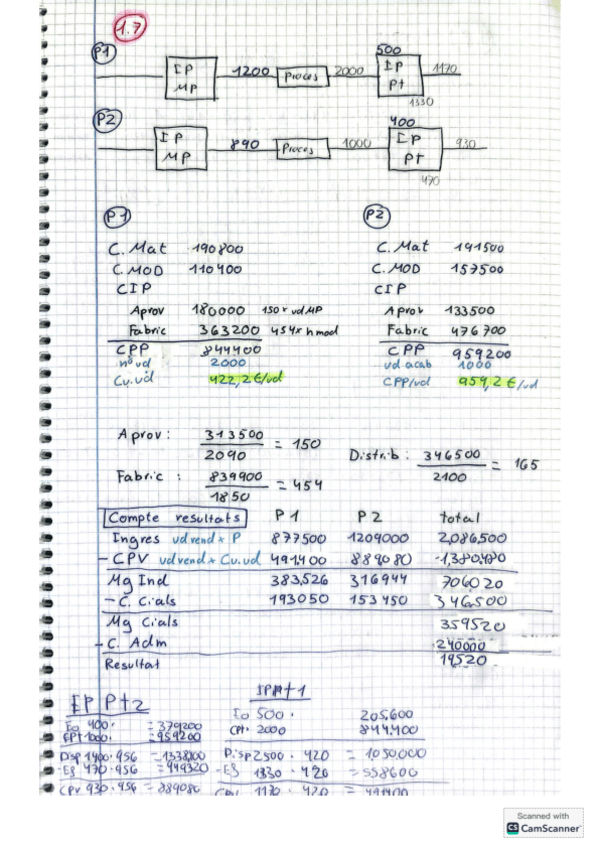 1.7
P1
IP MP 1200 Proces 2000 500 IP Pt 1170
1330
P2
IP MP 890 Proces 1000 400 IP Pt 930
470
P1
C. Mat 190800
C. MOD 110400
CIP
Aprov 180000 150 x ud MP
Fabric 363200 454 x h mod
CPP 844400
nº ud 2000
Cu. ud 422,2 €/ud
P2
C. Mat 191500
C. MOD 157500
CIP
Aprov 133500
Fabric 476700
CPP 959200
ud acab 1000
CPP/ud 959,2 €/ud
Aprov: 313500 / 2090 = 150
Fabric: 839900 / 1850 = 454
Distrib: 346500 / 2100 = 165
Compte resultats P1 P2 total
Ingres ud vend x P 877500 1209000 2,086,500
- CPV ud vend x Cu.ud 491,400 889080 -1,380,480
Mg Ind 383,526 316944 706020
- C. Cials 193050 153450 346.500
Mg Cials 359520
- C. Adm 240000
Resultat 19520
IP Pt2
Eo 400. = 379200
CPT 1000. = 959200
Disp 1400.956 = 1338400
- Ef 470.956 = 449320
CPV 930.956 = 889080
IP Pt1
Eo 500. 205,600
CPt. 2000 844,400
Disp 2500.420 = 1050,000
- Ef 1330.420 = 558600
CPV 1170.420 = 491400
Scanned with
CS CamScanner